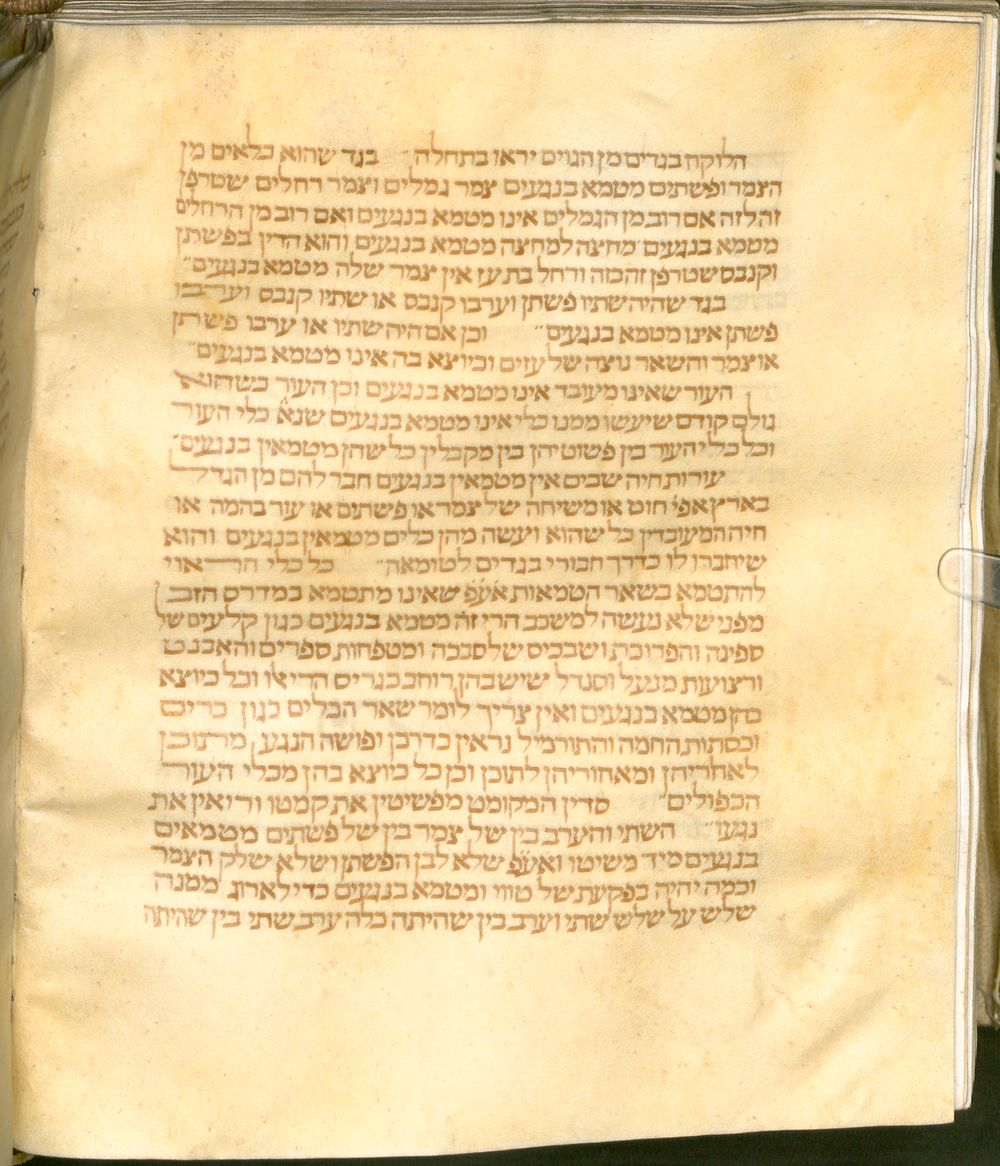 הלוקח בגדים מן הגוים יראו בתחלה״ בגד שהוא כלאים מן
הצמר ופשתים מטמא בנגעים צמר גמלים וצמר רחלים שטרפן
זה לזה אם רוב מן הגמלים אינו מטמא בנגעים ואם רוב מן הרחלים
מטמא בנגעים מחצה למחצה מטמא בנגעים והוא הדין בפשתן
וקנבס שטרפן זה בזה ורחל בת עז אין צמר שלה מטמא בנגעים״
בגד שהיה שתיו פשתן וערבו קנבס או שתיו קנבס וערבו
פשתן אינו מטמא בנגעים״ וכן אם היה שתיו או ערבו פשתן
או צמר והשאר נוצה של עזים וכיוצא בה אינו מטמא בנגעים״
העור שאינו מעובד אינו מטמא בנגעים וכן העור כשהוא
גולם קודם שיעשו ממנו כלי אינו מטמא בנגעים שנא׳ כלי העור
וכל כלי העור בין פשוטיהן בין מקבלין כל שהן מטמאין בנגעים״
עורות חיה שבים אין מטמאין בנגעים חבר להם מן הגדל
בארץ אפי׳ חוט או משיחה של צמר או פשתים או עור בהמה או
חיה המעובדין כל שהוא ועשה מהן כלים מטמאין בנגעים והוא
שיחברן לו כדרך חבורי בגדים לטומאה״ כל כלי הראוי
להתטמא בשאר הטמאות אע״פ שאינו מתטמא במדרס הזב
מפני שלא נעשה למשכב הרי זה מטמא בנגעים כגון קלעים של
ספינה והפרוכת ושבכיס של סבכה ומטפחות ספרים והאבנט
ורצועות מנעל וסנדל שיש בהן רוחב כגריס הרי אלו וכל כיוצא
בהן מטמא בנגעים ואין צריך לומר שאר הכלים כגון כרים
וכסתות החמה והתורמיל נראין כדרכן ופושה הנגע מתוכן
לאחריהן ומאחוריהן לתוכן וכן כל כיוצא בהן מכלי העור
הכפולים״ סדין המקומט מפשיטין את קמטו ורואין את
נגעו״ השתי והערב בין של צמר בין של פשתים מטמאים
בנגעים מיד משיטוו ואע״פ שלא לבן הפשתן ושלא שלק הצמר
וכמה יהיה בפקעת של טווי ומטמא בנגעים כדי לארוג ממנה
שלש על שלש שתי וערב בין שהיתה כלה ערב שתי בין שהיתה